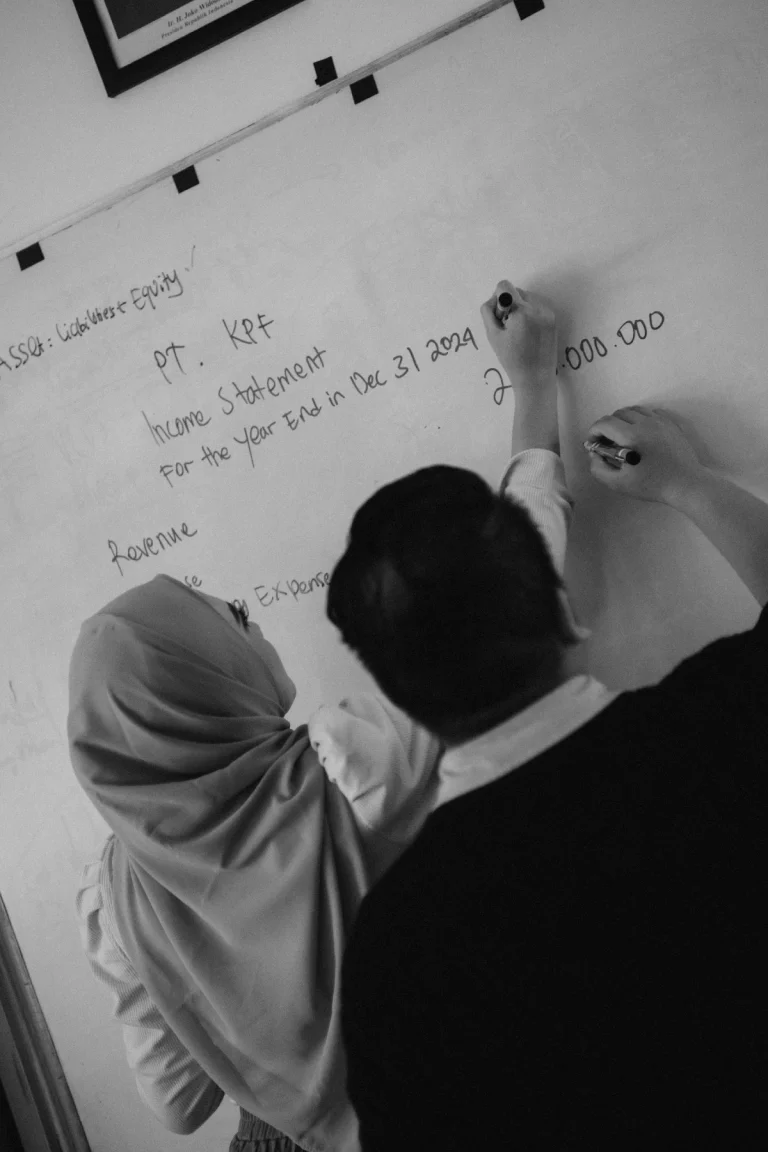 Ir. H. Joko Widodo
Presiden Republik Indonesia
Asset: Liabilities + Equity
PT. KPF
Income Statement
For the Year End in Dec 31 2024
.000.000
Revenue
Expense